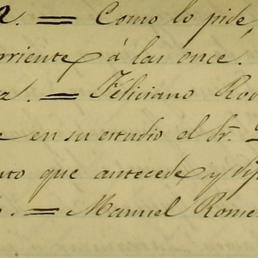 a. = Como lo pide,
rriente á las once.
a. = Feliciano Rod
e en su estudio el Sr.
nto que antecede y dij
o. = Manuel Rome